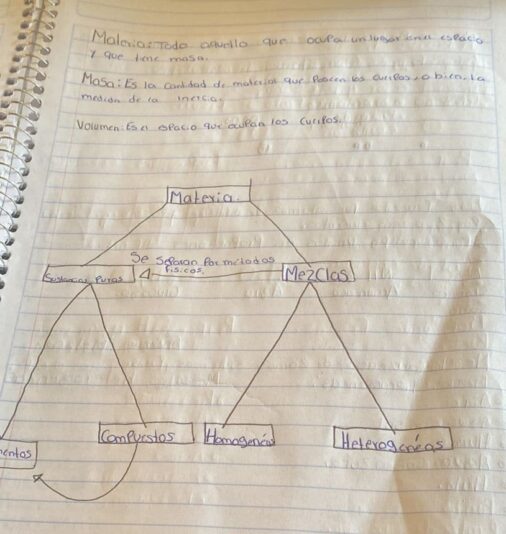 Materia: Todo aquello que ocupa un lugar en el espacio
y que tiene masa.
Masa: Es la cantidad de materia que Poseen los cuerpos, o bien, la
medición de la inercia.
Volumen: Es el espacio que ocupan los cuerpos.
Materia
Se Separan Por metodos
físicos.
Sustancias Puras
Mezclas
Compuestos
Homogenéas
Heterogenéas
mentos